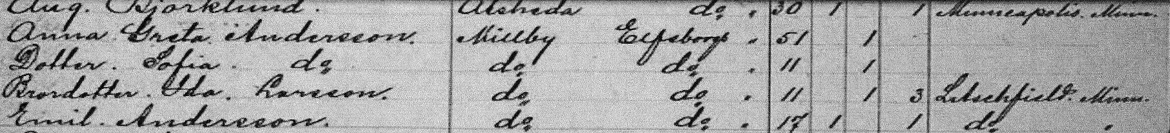 Aug. Björklund. Alsheda do " 30 1 1 Minneapolis. Minn.
Anna Greta Andersson. Millby Elfsborgs " 51 1
Dotter. Sofia. do do do " 11 1
Brordotter. Ida. Larsson. do do " 11 1 3 Letschfield. Minn.
Emil. Andersson. do do " 17 1 1 do "